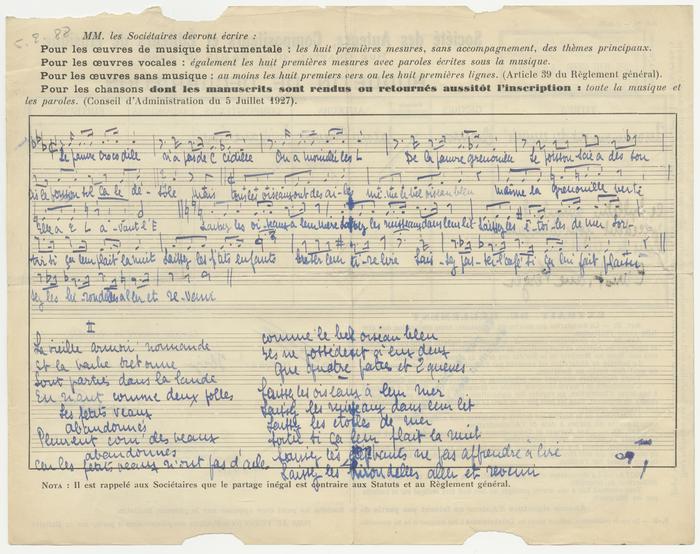 MM. les Sociétaires devront écrire :
Pour les œuvres de musique instrumentale : les huit premières mesures, sans accompagnement, des thèmes principaux.
Pour les œuvres vocales : également les huit premières mesures avec paroles écrites sous la musique.
Pour les œuvres sans musique : au moins les huit premiers vers ou les huit premières lignes. (Article 39 du Règlement général).
Pour les chansons dont les manuscrits sont rendus ou retournés aussitôt l'inscription : toute la musique et
les paroles. (Conseil d'Administration du 5 Juillet 1927).
Le pauvre crocodile n'a pas de C cédille On a mouillé les L De la pauvre grenouille Le poisson-scie a des sou
cis le poisson sole ça le dé- sole Mais tous les oiseaux ont des ai-les même le vieil oiseau bleu même la grenouille verte
Elle a 2 L a-vant l'E Laissez les oi-seaux à leur mère Laissez les ruisseaux dans leur lit Laissez les é-toi-les de mer Sor-
tir si ça leur plaît la nuit Laissez les p'tits enfants briser leur ti-re lire Lais-sez pas-ser l'café si ça lui fait plaisir
sez les hirondelles aller et re-venir
II
La vieille armoire normande
Et la vache bretonne
Sont parties dans la lande
En riant comme deux folles
Les petits veaux
abandonnés
Pleurent comm' des veaux
abandonnés
Car les petits veaux n'ont pas d'aile
comme le bel oiseau bleu
Ils ne possèdent qu'eux deux
Que quatre pattes et 2 queues.
Laissez les oiseaux à leur mer
Laissez les ruisseaux dans leur lit
Laissez les étoiles de mer
sortir si ça leur plaît la nuit
Laissez les éléphants ne pas apprendre à lire
Laissez les hirondelles aller et revenir
NOTA : Il est rappelé aux Sociétaires que le partage inégal est contraire aux Statuts et au Règlement général.